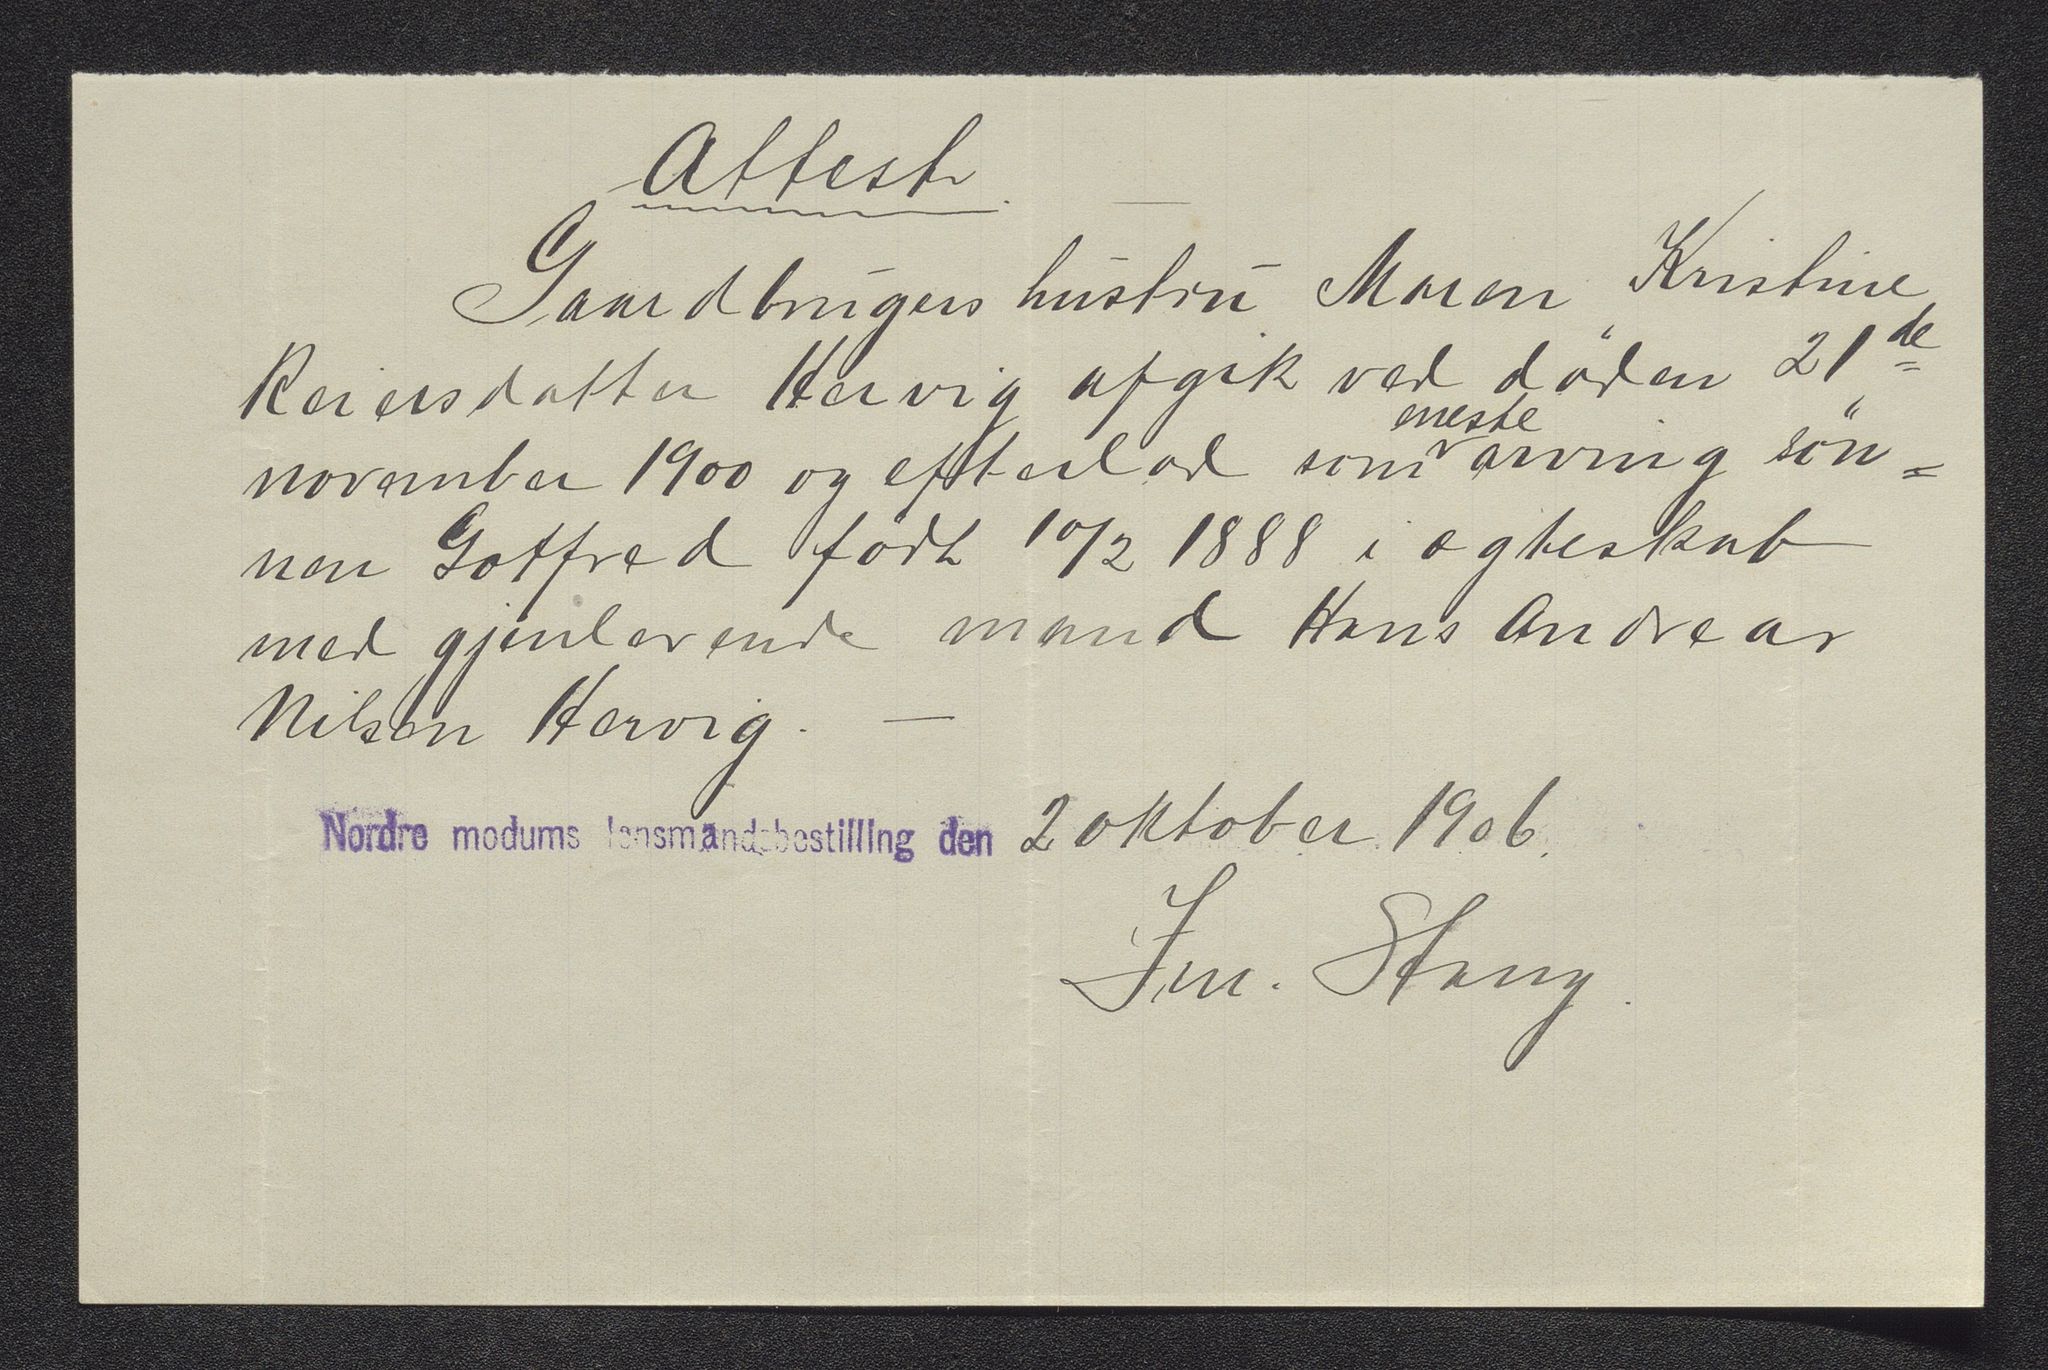 Attest.
Gaardbrugers hustru Maren Kristine
Reiersdatter Hervig afgik ved döden 21de
eneste
november 1900 og efterlod som arving sön=
nen Gotfred födt 10/2 1888 i ægteskab
med gjenlevende mand Hans Andreas
Nilsen Hervig. —
Nordre modums lensmandsbestilling den 2 oktober 1906.
Jın. Stang.